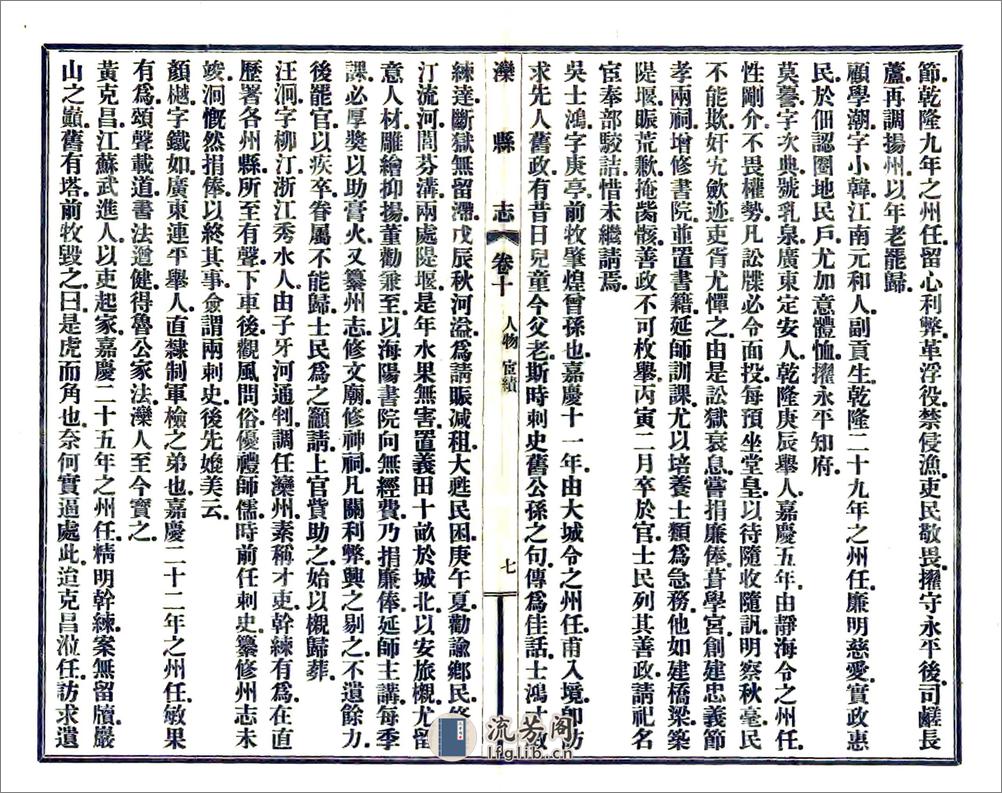 節乾隆九年之州任留心利弊革浮役禁侵漁吏民敬畏擢守永平後司鹺長
蘆再調揚州以年老罷歸
顧學潮字小韓江南元和人副貢生乾隆二十九年之州任廉明慈愛實政惠
民於佃認圈地民戶尤加意體恤擢永平知府
莫瞢字次典號乳泉廣東定安人乾隆庚辰舉人嘉慶五年由靜海令之州任
性剛介不畏權勢凡訟牒必令面投每預坐堂皇以待隨收隨訊明察秋毫民
不能欺奸宄歛迹吏胥尤憚之由是訟獄衰息嘗捐廉俸葺學宮創建忠義節
孝兩祠增修書院並置書籍延師訓課尤以培養士類為急務他如建橋梁築
隄堰賑荒歉掩胔骸善政不可枚舉丙寅二月卒於官士民列其善政請祀名
宦奉部駮詰惜未繼請焉
吳士鴻字庚亭前牧肇煌曾孫也嘉慶十一年由大城令之州任甫入境即訪
求先人舊政有昔日兒童今父老斯時刺史舊公孫之句傳為佳話士鴻才敏
灤縣志 卷十 人物 宦績 七
練達斷獄無留滯戊辰秋河溢為請賑減租大甦民困庚午夏勸諭鄉民修
汀流河閻芬溝兩處隄堰是年水果無害置義田十畝於城北以安旅櫬尤留
意人材雕繪抑揚董勸兼至以海陽書院向無經費乃捐廉俸延師主講每季
課必厚獎以助膏火又纂州志修文廟修神祠凡關利弊興之剔之不遺餘力
後罷官以疾卒眷屬不能歸士民為之籲請上官貲助之始以櫬歸葬
汪泂字柳汀浙江秀水人由子牙河通判調任灤州素稱才吏幹練有為在直
歷署各州縣所至有聲下車後觀風問俗優禮師儒時前任刺史纂修州志未
竣泂慨然捐俸以終其事僉謂兩刺史後先媲美云
顏樾字鐵如廣東連平舉人直隸制軍檢之弟也嘉慶二十二年之州任敏果
有為頌聲載道書法遒健得魯公家法灤人至今寶之
黃克昌江蘇武進人以吏起家嘉慶二十五年之州任精明幹練案無留牘巖
山之巔舊有塔前牧毀之曰是虎而角也奈何實逼處此迨克昌涖任訪求遺
流芳阁
lfglib.cn